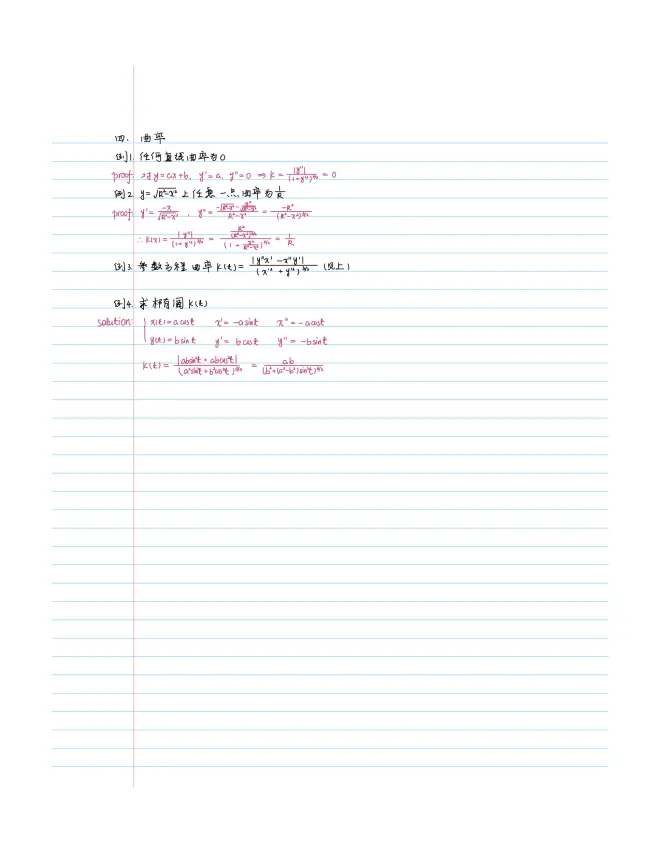 四、曲率
例1. 任何直线曲率为0
proof: 对 y=ax+b, y'=a, y''=0 ⇒ K = |y''| / (1+y'²)^{3/2} = 0
例2. y=√(R²-x²) 上任意一点, 曲率为 1/R
proof: y' = -x / √(R²-x²) , y'' = (-√(R²-x²) - x²/√(R²-x²)) / (R²-x²) = -R² / (R²-x²)^{3/2}
∴ K(x) = |y''| / (1+y'²)^{3/2} = (R² / (R²-x²)^{3/2}) / (1 + x²/(R²-x²))^{3/2} = 1/R,
例3. 参数方程曲率 K(t) = |y''x' - x''y'| / (x'² + y'²)^{3/2} (见上)
例4. 求椭圆 K(t)
solution: { x(t)=acost x'=-asint x''=-acost
y(t)=bsint y'=bcost y''=-bsint
K(t) = |absin²t + abcos²t| / (a²sin²t+b²cos²t)^{3/2} = ab / (b²+(a²-b²)sin²t)^{3/2}